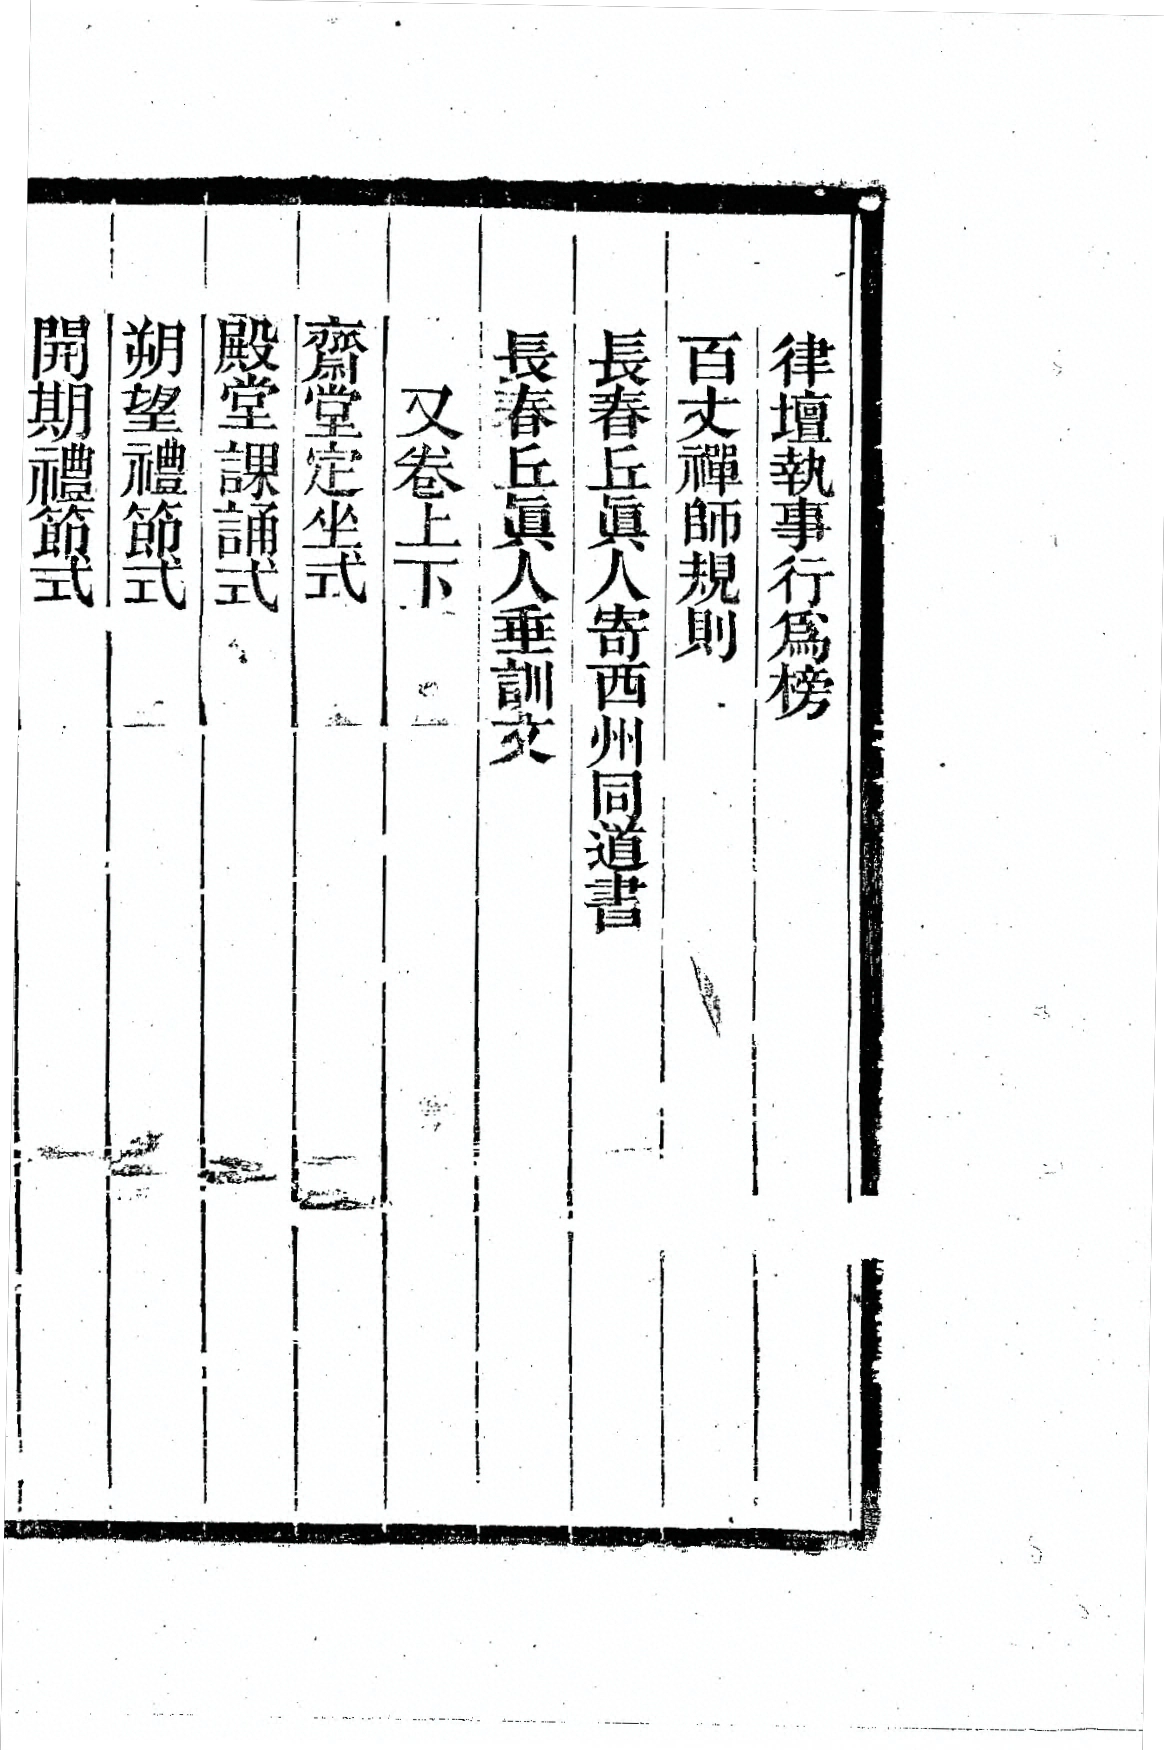 律壇執事行爲榜
百丈禪師規則
長春丘眞人寄西州同道書
長春丘眞人垂訓文
又卷上下
齋堂定坐式
殿堂課誦式
朔望禮節式
開期禮節式